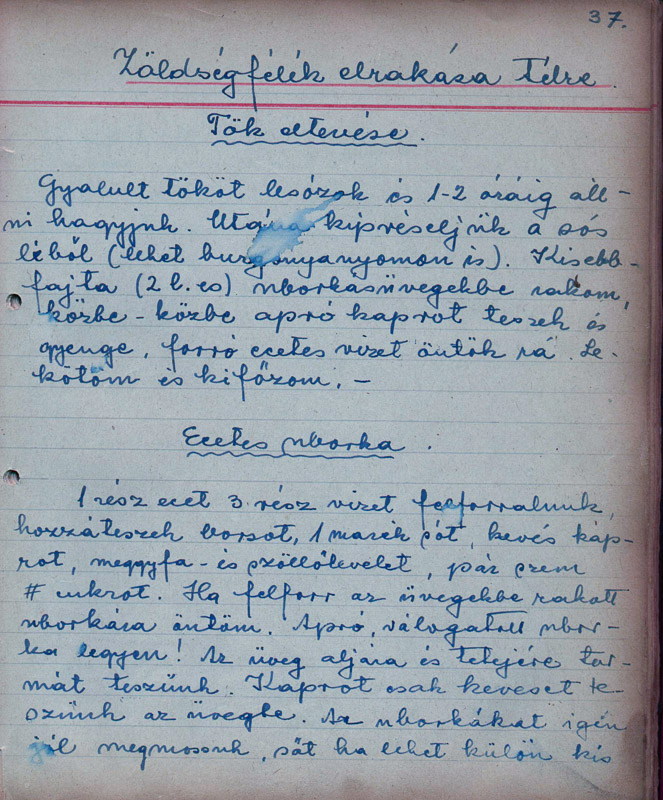 37.
Zöldségfélék elrakása télre.
Tök eltevése.
Gyalult tököt lesózok és 1-2 óráig áll-
ni hagyjuk. Utána kipréseljük a sós
léből (lehet burgonyanyomón is). Kisebb-
fajta (2 l. es) uborkásüvegekbe rakom,
közbe-közbe apró kaprot teszek és
gyenge, forró ecetes vizet öntök rá. Le-
kötöm és kifőzöm. -
Ecetes uborka.
1 rész ecet 3 rész vizet felforralunk,
hozzáteszek borsot, 1 marék sót, kevés kap-
rot, meggyfa- és szőllőlevelet, pár szem
# cukrot. Ha felforr az üvegekbe rakott
uborkára öntöm. Apró, válogatott ubor-
ka legyen! Az üveg aljára és tetejére tor-
mát teszünk. Kaprot csak keveset te-
szünk az üvegbe. Az uborkákat igén
jól megmossuk, sőt ha lehet külön kis